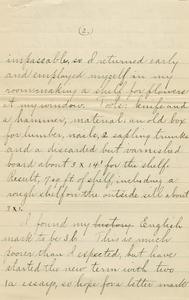 (2.)
impassable, so I returned early
and employed myself in my
room making a shelf for flowers
at my window. Tools: knife and
a hammer, material: an old box
for lumber, nails, 2 sapling trunks
and a discarded but varnished
board about 3 x 14' for the shelf.
Result, 7 sq ft of shelf, including a
rough shelf on the outside sill about
I found my history English
mark to be 36. This is much
poorer than I expected, but have
started the new term with two
essay, so hope for a better mark